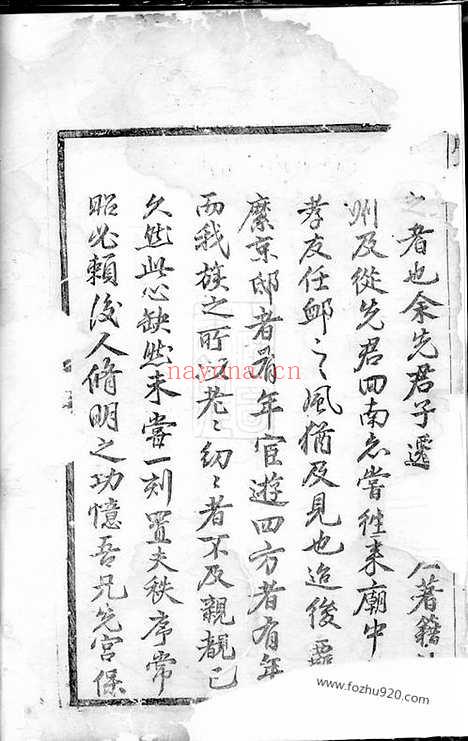 之者也余先君子遷 仁著籍
州及從先君回南亦嘗往來廟中
孝友任䘏之風猶及見也迨後
縻京邸者有年宦遊四方者有年
而我族之所以老之幼之者不及親覩已
久然此心缺然未嘗一刻置夫秩序常
昭必賴後人脩明之功憶吾兄先宮保
nayona.cn
www.fozhu920.com